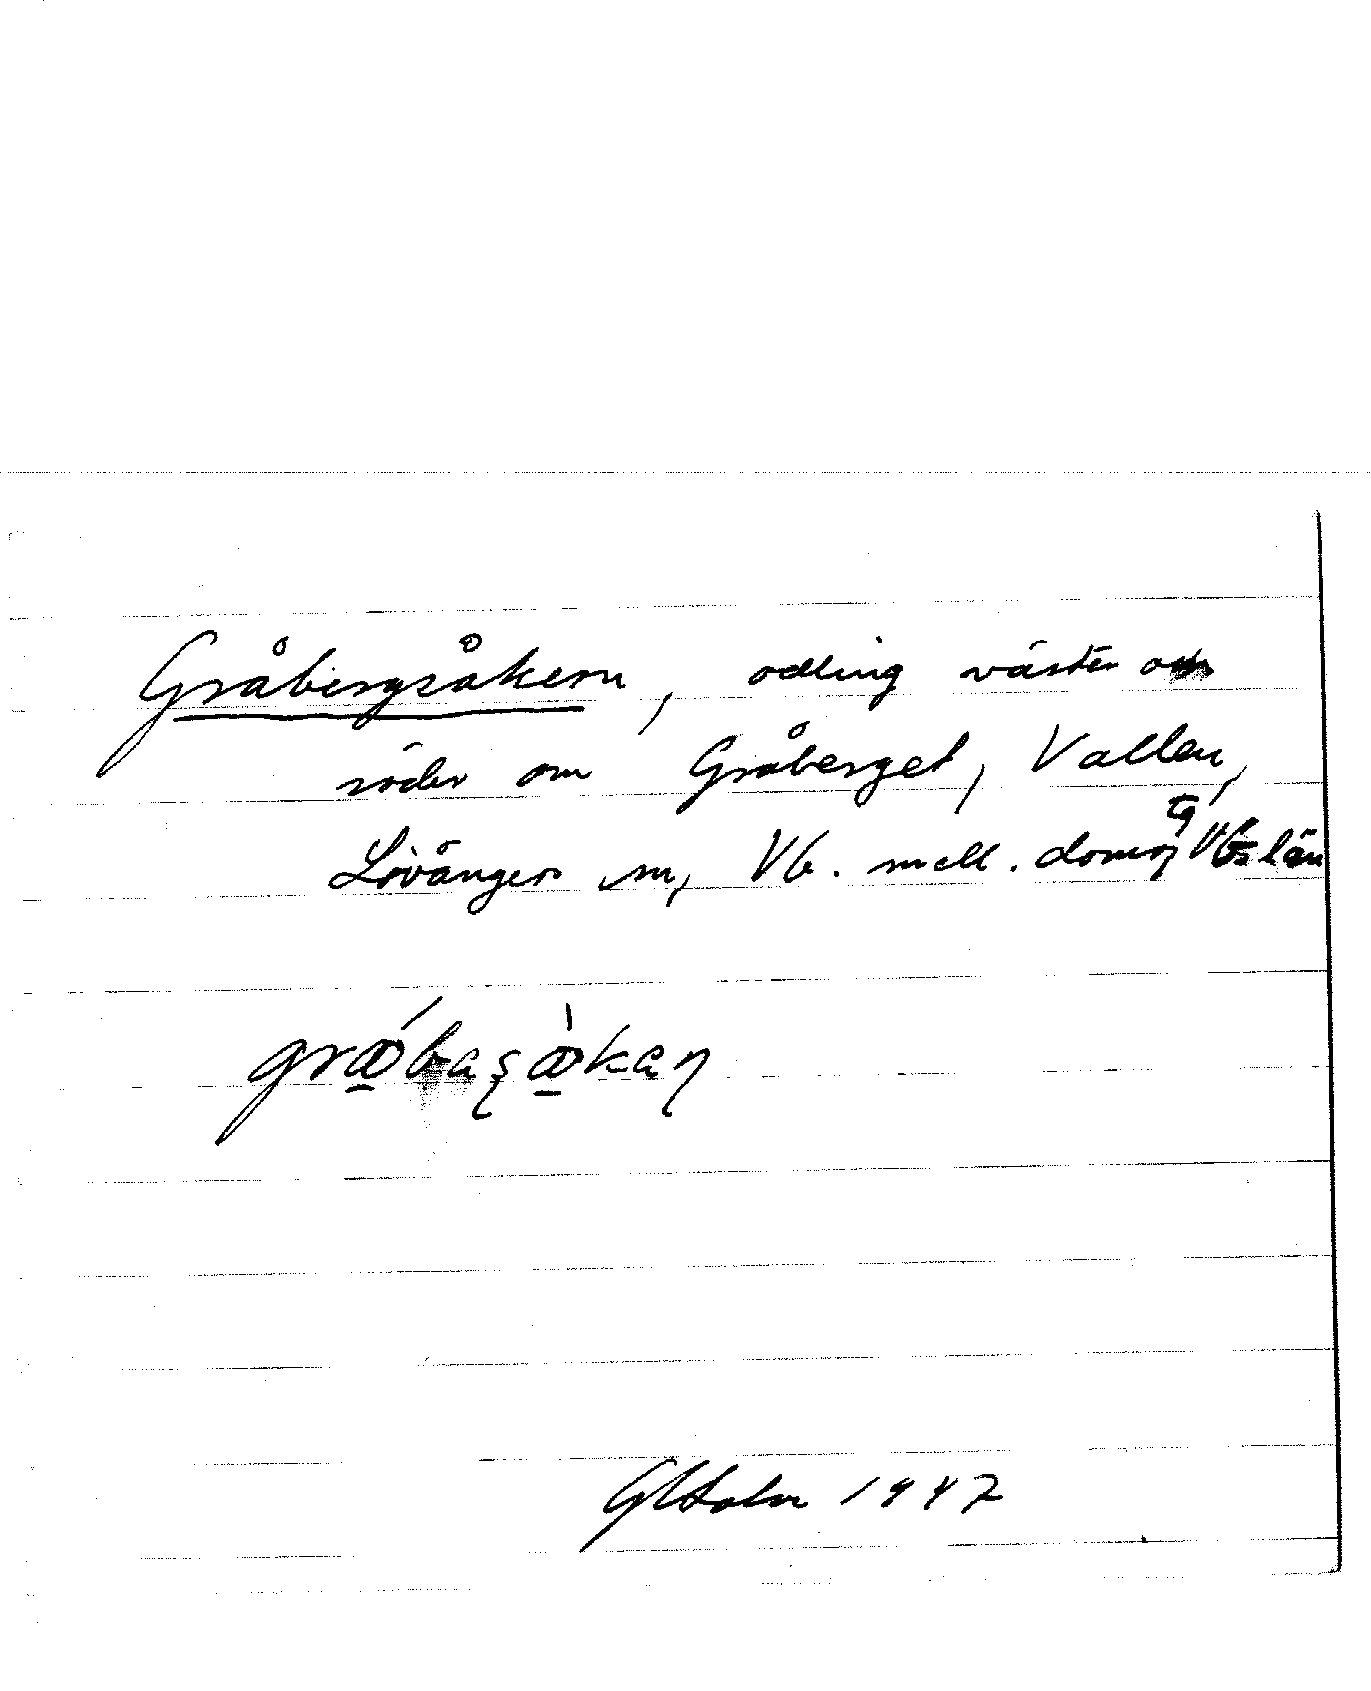 Gråbergsåkern, odling väster och
söder om Gråberget, Vallen,
Lövånger sn, Vb. mell. doms tg Vb:s län
GHolm 1947